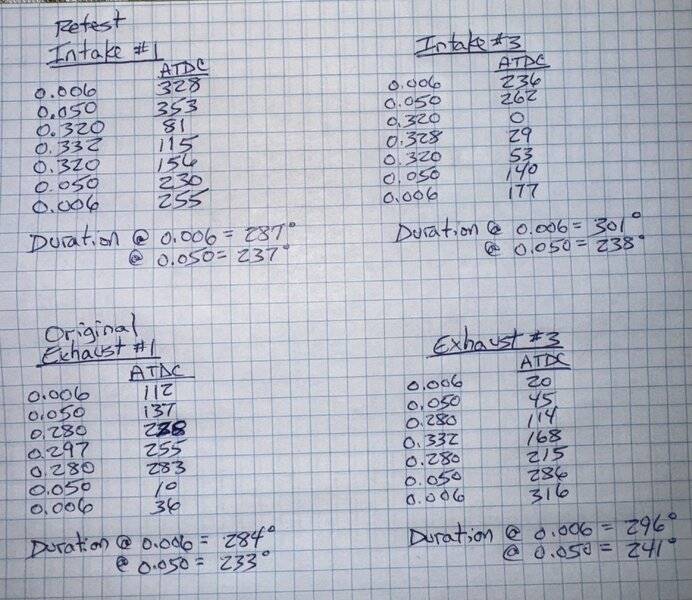 Retest
Intake #1
ATDC
0.006 328
0.050 353
0.320 81
0.332 115
0.320 156
0.050 230
0.006 255
Duration @ 0.006 = 287°
@ 0.050 = 237°
Intake #3
ATDC
0.006 236
0.050 262
0.320 0
0.328 29
0.320 53
0.050 140
0.006 177
Duration @ 0.006 = 301°
@ 0.050 = 238°
Original
Exhaust #1
ATDC
0.006 112
0.050 137
0.280
0.297 255
0.280 283
0.050 10
0.006 36
Duration @ 0.006 = 284°
@ 0.050 = 233°
Exhaust #3
ATDC
0.006 20
0.050 45
0.280 114
0.332 168
0.280 215
0.050 286
0.006 316
Duration @ 0.006 = 296°
@ 0.050 = 241°